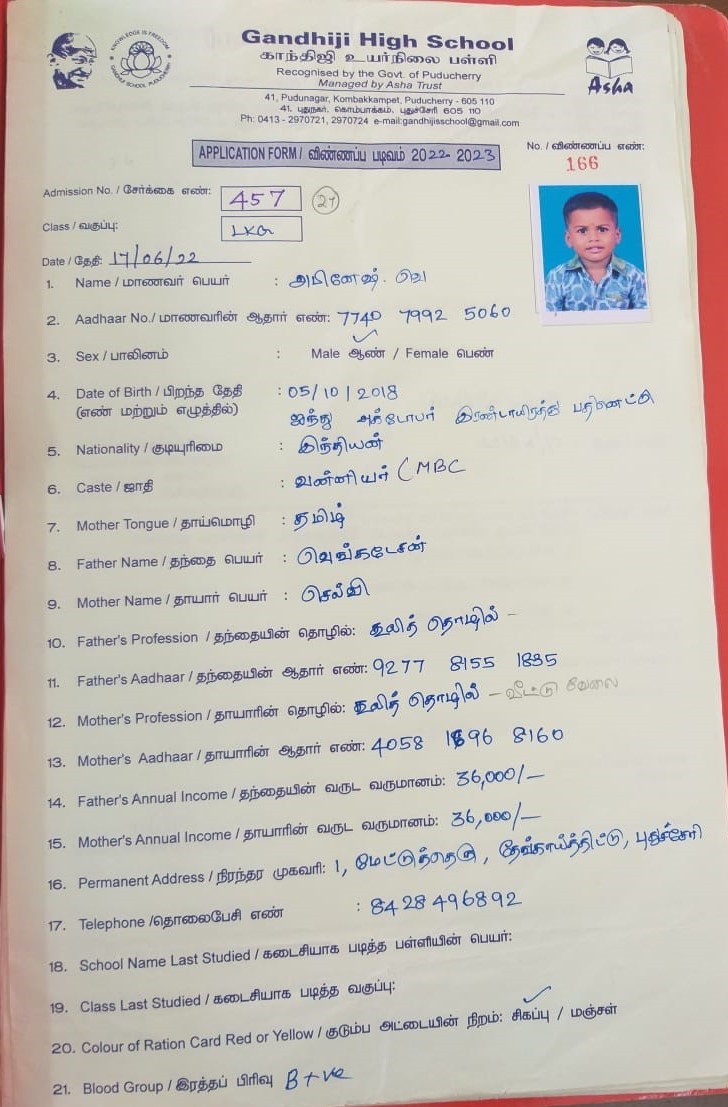 KNOWLEDGE IS FREEDOM
GANDHIJI SCHOOL PUDUCHERRY
Gandhiji High School
காந்திஜி உயர்நிலை பள்ளி
Recognised by the Govt. of Puducherry
Managed by Asha Trust
Asha
41, Pudunagar, Kombakkampet, Puducherry - 605 110
41, புதுநகர், கொம்பாக்கம், புதுச்சேரி 605 110
Ph: 0413 - 2970721, 2970724 e-mail:gandhijisschool@gmail.com
APPLICATION FORM / விண்ணப்ப படிவம் 2022 - 2023
No. / விண்ணப்ப எண்:
166
Admission No. / சேர்க்கை எண்: 457 27
Class / வகுப்பு: LKG
Date / தேதி: 17/06/22
1. Name / மாணவர் பெயர் : அபினேஷ்.
2. Aadhaar No./ மாணவரின் ஆதார் எண்: 7740 7992 5060
3. Sex / பாலினம் : Male ஆண் / Female பெண்
4. Date of Birth / பிறந்த தேதி : 05/10/2018
(எண் மற்றும் எழுத்தில்) ஐந்து அக்டோபர் இரண்டாயிரத்து பதினெட்டு
5. Nationality / குடியுரிமை : இந்தியன்
6. Caste / ஜாதி : வன்னியர் (MBC
7. Mother Tongue / தாய்மொழி : தமிழ்
8. Father Name / தந்தை பெயர் : வெங்கடேசன்
9. Mother Name / தாயார் பெயர் : செல்வி
10. Father's Profession / தந்தையின் தொழில்: கூலித் தொழில் -
11. Father's Aadhaar / தந்தையின் ஆதார் எண்: 9277 8155 1835
12. Mother's Profession / தாயாரின் தொழில்: கூலித் தொழில் - வீட்டு வேலை
13. Mother's Aadhaar / தாயாரின் ஆதார் எண்: 4058 1896 8160
14. Father's Annual Income / தந்தையின் வருட வருமானம்: 36,000/-
15. Mother's Annual Income / தாயாரின் வருட வருமானம்: 36,000/-
16. Permanent Address / நிரந்தர முகவரி: 1, மேட்டுத்தெரு, தேங்காய்த்திட்டு, புதுச்சேரி
17. Telephone /தொலைபேசி எண் : 8428496892
18. School Name Last Studied / கடைசியாக படித்த பள்ளியின் பெயர்:
19. Class Last Studied / கடைசியாக படித்த வகுப்பு:
20. Colour of Ration Card Red or Yellow / குடும்ப அட்டையின் நிறம்: சிகப்பு / மஞ்சள்
21. Blood Group / இரத்தப் பிரிவு B+ve